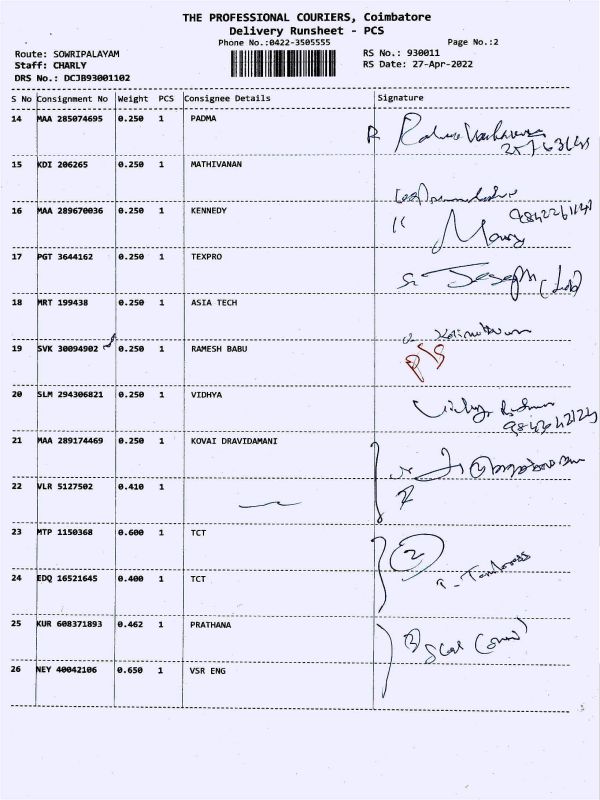 THE PROFESSIONAL COURIERS, Coimbatore
Delivery Runsheet - PCS
Phone No.:0422-3505555 Page No.:2
Route: SOWRIPALAYAM RS No.: 930011
Staff: CHARLY RS Date: 27-Apr-2022
DRS No.: DCJB93001102
S No Consignment No Weight PCS Consignee Details Signature
14 MAA 285074695 0.250 1 PADMA
15 KDI 206265 0.250 1 MATHIVANAN
16 MAA 289670036 0.250 1 KENNEDY
17 PGT 3644162 0.250 1 TEXPRO
18 MRT 199438 0.250 1 ASIA TECH
19 SVK 30094902 0.250 1 RAMESH BABU
20 SLM 294306821 0.250 1 VIDHYA
21 MAA 289174469 0.250 1 KOVAI DRAVIDAMANI
22 VLR 5127502 0.410 1
23 MTP 1150368 0.600 1 TCT
2
24 EDQ 16521645 0.400 1 TCT
25 KUR 608371893 0.462 1 PRATHANA
26 NEY 40042106 0.650 1 VSR ENG